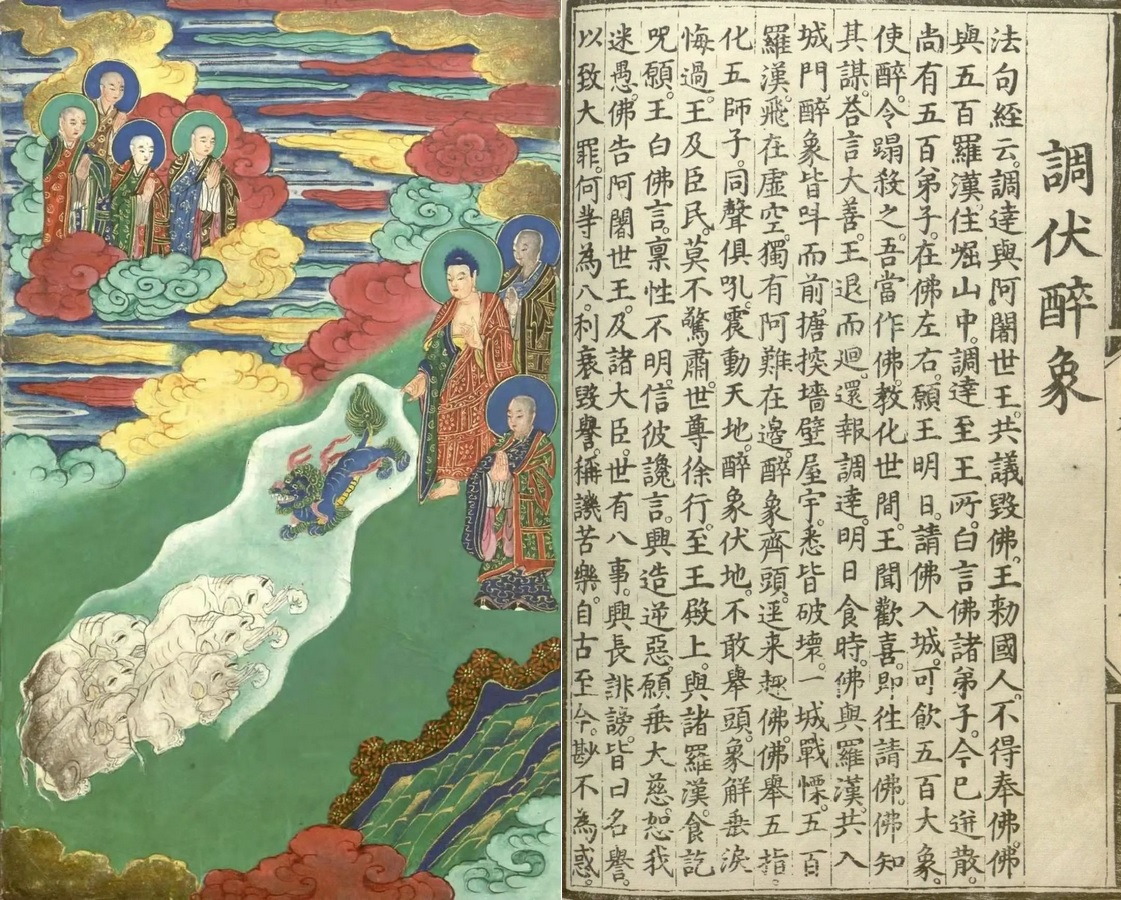 調伏醉象
法句經云。調達與阿闍世王。共議毀佛。王勑國人。不得奉佛。佛
與五百羅漢。住崛山中。調達至王所。白言。佛諸弟子。今已迸散。
尚有五百弟子。在佛左右。願王明日。請佛入城。可飲五百大象。
使醉。令蹋殺之。吾當作佛。教化世間。王聞歡喜。即往請佛。佛知
其謀。荅言大善。王退而迴。還報調達。明日食時。佛與羅漢。共入
城門。醉象皆吽而前。搪揬墻壁。屋宇。悉皆破壞。一城戰慄。五百
羅漢。飛在虛空。獨有阿難在邊。醉象齊頭。逕来趣佛。佛舉五指。
化五師子。同聲俱吼。震動天地。醉象伏地。不敢舉頭。象解垂淚
悔過。王及臣民。莫不驚肅。世尊徐行。至王殿上。與諸羅漢。食訖
呪願。王白佛言。稟性不明。信彼讒言。興造逆惡。願垂大慈。恕我
迷愚。佛告阿闍世王。及諸大臣。世有八事。興長誹謗。皆由名譽。
以致大罪。何等為八。利衰毀譽。稱譏苦樂。自古至今。尠不為惑。